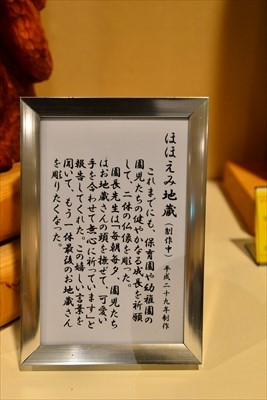 ほほえみ地蔵（制作中）平成二十九年制作
これまでにも、保育園や幼稚園の
園児たちの健やかなる成長を祈願
して、二体の仏像を彫った。
園長先生は「毎朝毎夕、園児たち
はお地蔵さんの頭を撫ぜて、可愛い
手を合わせて無心に祈っています」と
報告してくれた。この嬉しい言葉を
聞いて、もう一体最後のお地蔵さん
を彫りたくなった。